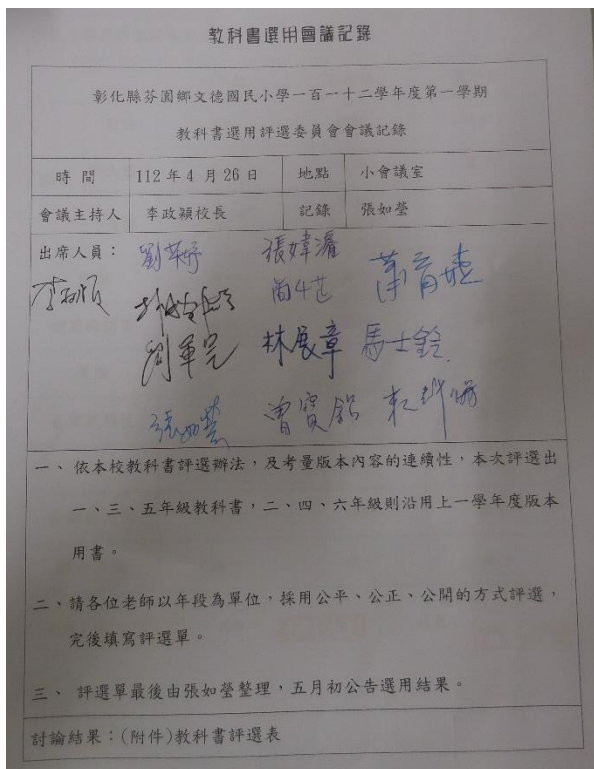 教科書選用會議記錄
彰化縣芬園鄉文德國民小學一百一十二學年度第一學期
教科書選用評選委員會會議記錄
時間 112年4月26日 地點 小會議室
會議主持人 李政穎校長 記錄 張如瑩
出席人員：
林展章 馬士銓
張如瑩
一、 依本校教科書評選辦法，及考量版本內容的連續性，本次評選出
一、三、五年級教科書，二、四、六年級則沿用上一學年度版本
用書。
二、請各位老師以年段為單位，採用公平、公正、公開的方式評選，
完後填寫評選單。
三、 評選單最後由張如瑩整理，五月初公告選用結果。
討論結果：(附件)教科書評選表